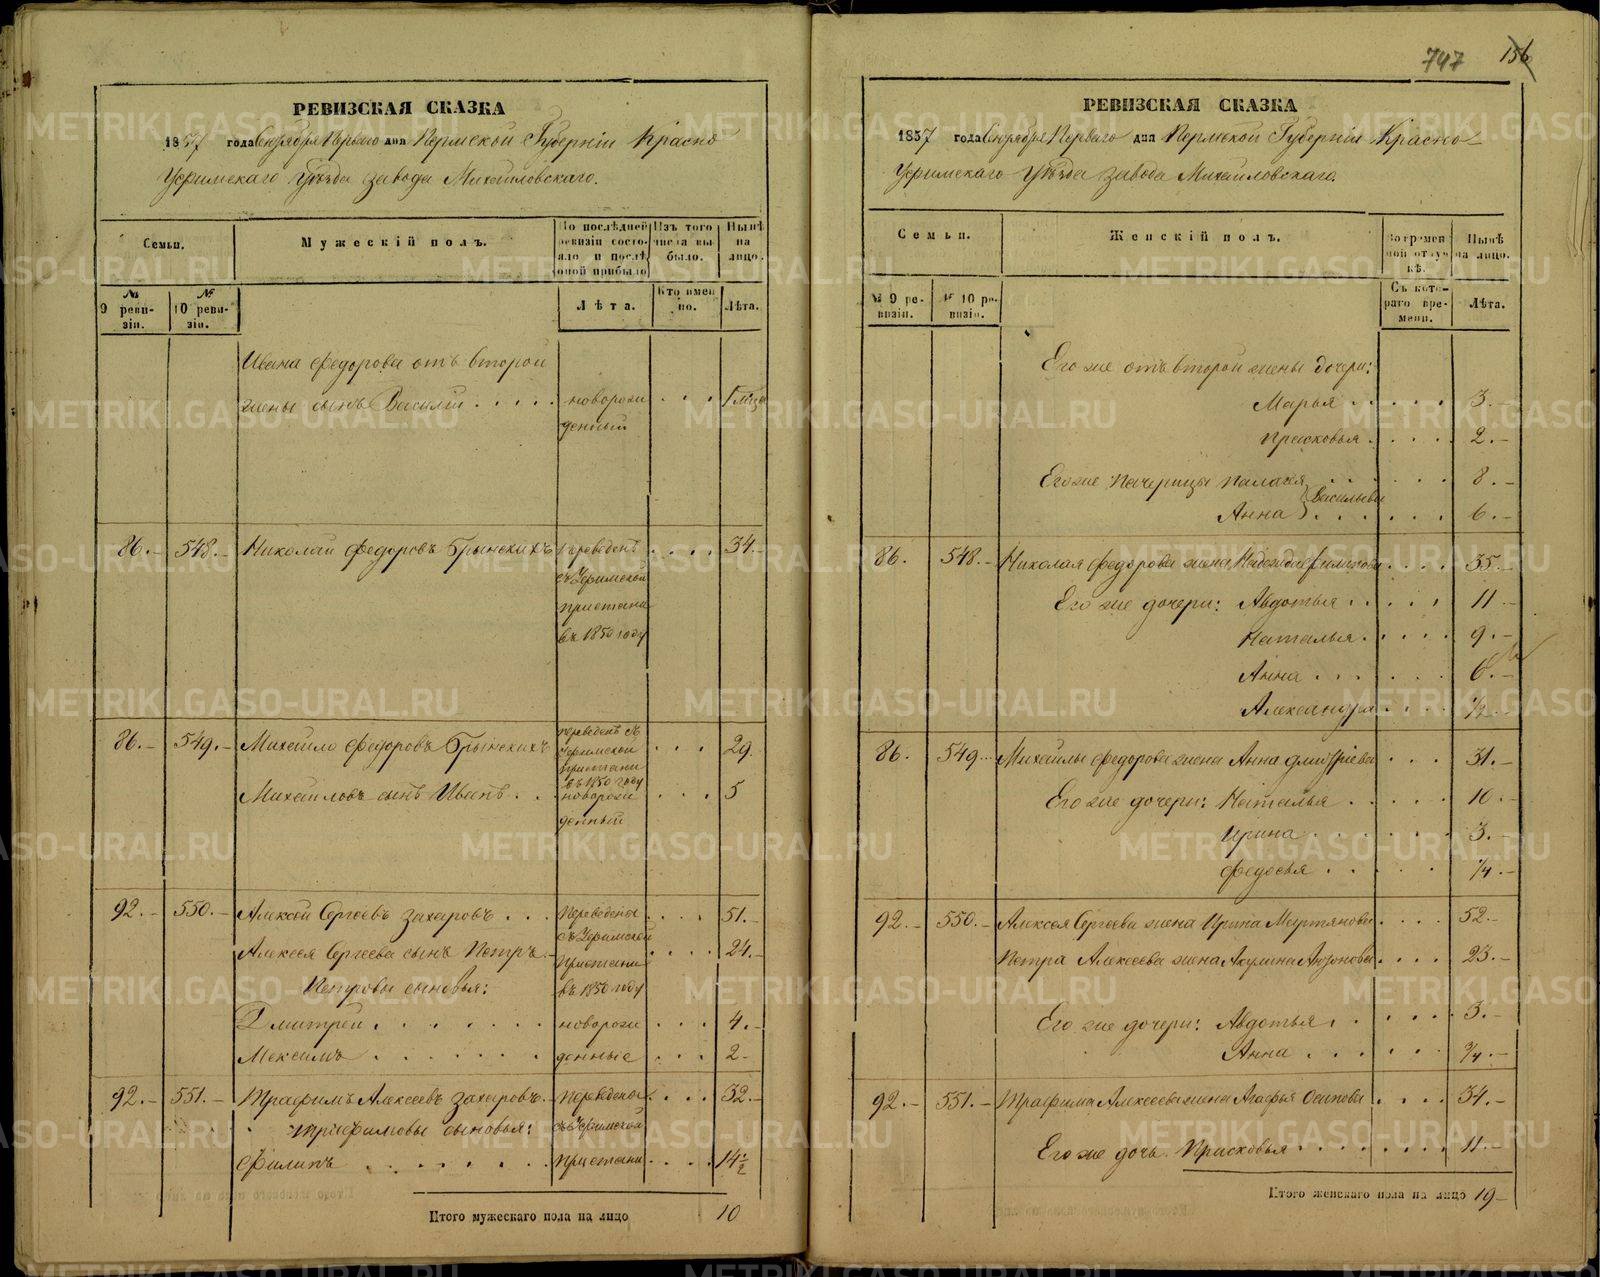 РЕВИЗСКАЯ СКАЗКА
1857 года Сентября Перваго дня Пермской Губерніи Красно
Уфимскаго Уѣзда завода Михайловскаго.
Семьи.
Мужескій полъ.
По послѣдней ревизіи состояло и послѣ оной прибыло
Изъ того числа выбыло.
Нынѣ на лицо.
№ 9 ревизіи.
№ 10 ревизіи.
Лѣта.
Кто именно.
Лѣта.
Ивана Федорова отъ второй
жены сынъ Василій . . . . . новорож . . .
денный
86. 548. Николай Федоровъ Брынскихъ переведенъ . . . . 34.
съ Уфимской
пристани
въ 1850 году
86. 549. Михайло Федоровъ Брынскихъ переведенъ съ . . . 29.
Уфимской
пристани
въ 1850 году
Михайловъ сынъ Иванъ . . новорож . . . 5
денный
92. 550. Алексей Сергеевъ Захаровъ . . . Переведены . . . . 51.
съ Уфимской
Алексея Сергеева сынъ Петръ пристани . . . . 24.
Петровы сыновья: въ 1850 году
Дмитрей . . . . . . . новорож . . . 4.
Максимъ . . . . . . . денные . . . 2
92. 551. Трафимъ Алексеевъ Захаровъ. Переведены . . . 32.
Трафимовы сыновья: съ Уфимской
Филипъ . . . . . . . . пристани . . . . 14½
Итого мужескаго пола на лицо 10
747 156
РЕВИЗСКАЯ СКАЗКА
1857 года Сентября Перваго дня Пермской Губерніи Красно-
Уфимскаго Уѣзда завода Михайловскаго.
Семьи.
Женскій полъ.
Во временной отлучкѣ.
Нынѣ на лицо.
№ 9 ревизіи.
№ 10 ревизіи.
Съ котораго времени.
Лѣта.
Его же отъ второй жены дочери:
Марья . . . . . 3.
Прасковья . . . . 2.
Его же пачерицы Палагея . . . . . . 8.
Васильевы
Анна . . . . . . 6.
86. 548. Николая Федорова жена Надежда Филипова . . . . 35.
Его же дочери: Авдотья . . . . . 11
Наталья . . . . . 9.
Анна . . . . . . 6.
Александра . . . .
86. 549. Михайлы Федорова жена Анна Дмитріева . . . 31.
Его же дочери: Наталья . . . . . 10.
Ирина . . . . . . . 3.
Федосья . . . . . . ¼.
92. 550. Алексея Сергеева жена Ирина Мартянова . . . . 52.
Петра Алексеева жена Акулина Антонова . . . . 23.
Его же дочери: Авдотья . . . . . . 3.
Анна . . . . . . ¾.
92. 551. Трафима Алексеева жена Агафья Осипова . . . . 34.
Его же дочь Прасковья . . . . . . . . 11.
Итого женскаго пола на лицо 19
METRIKI.GASO-URAL.RU